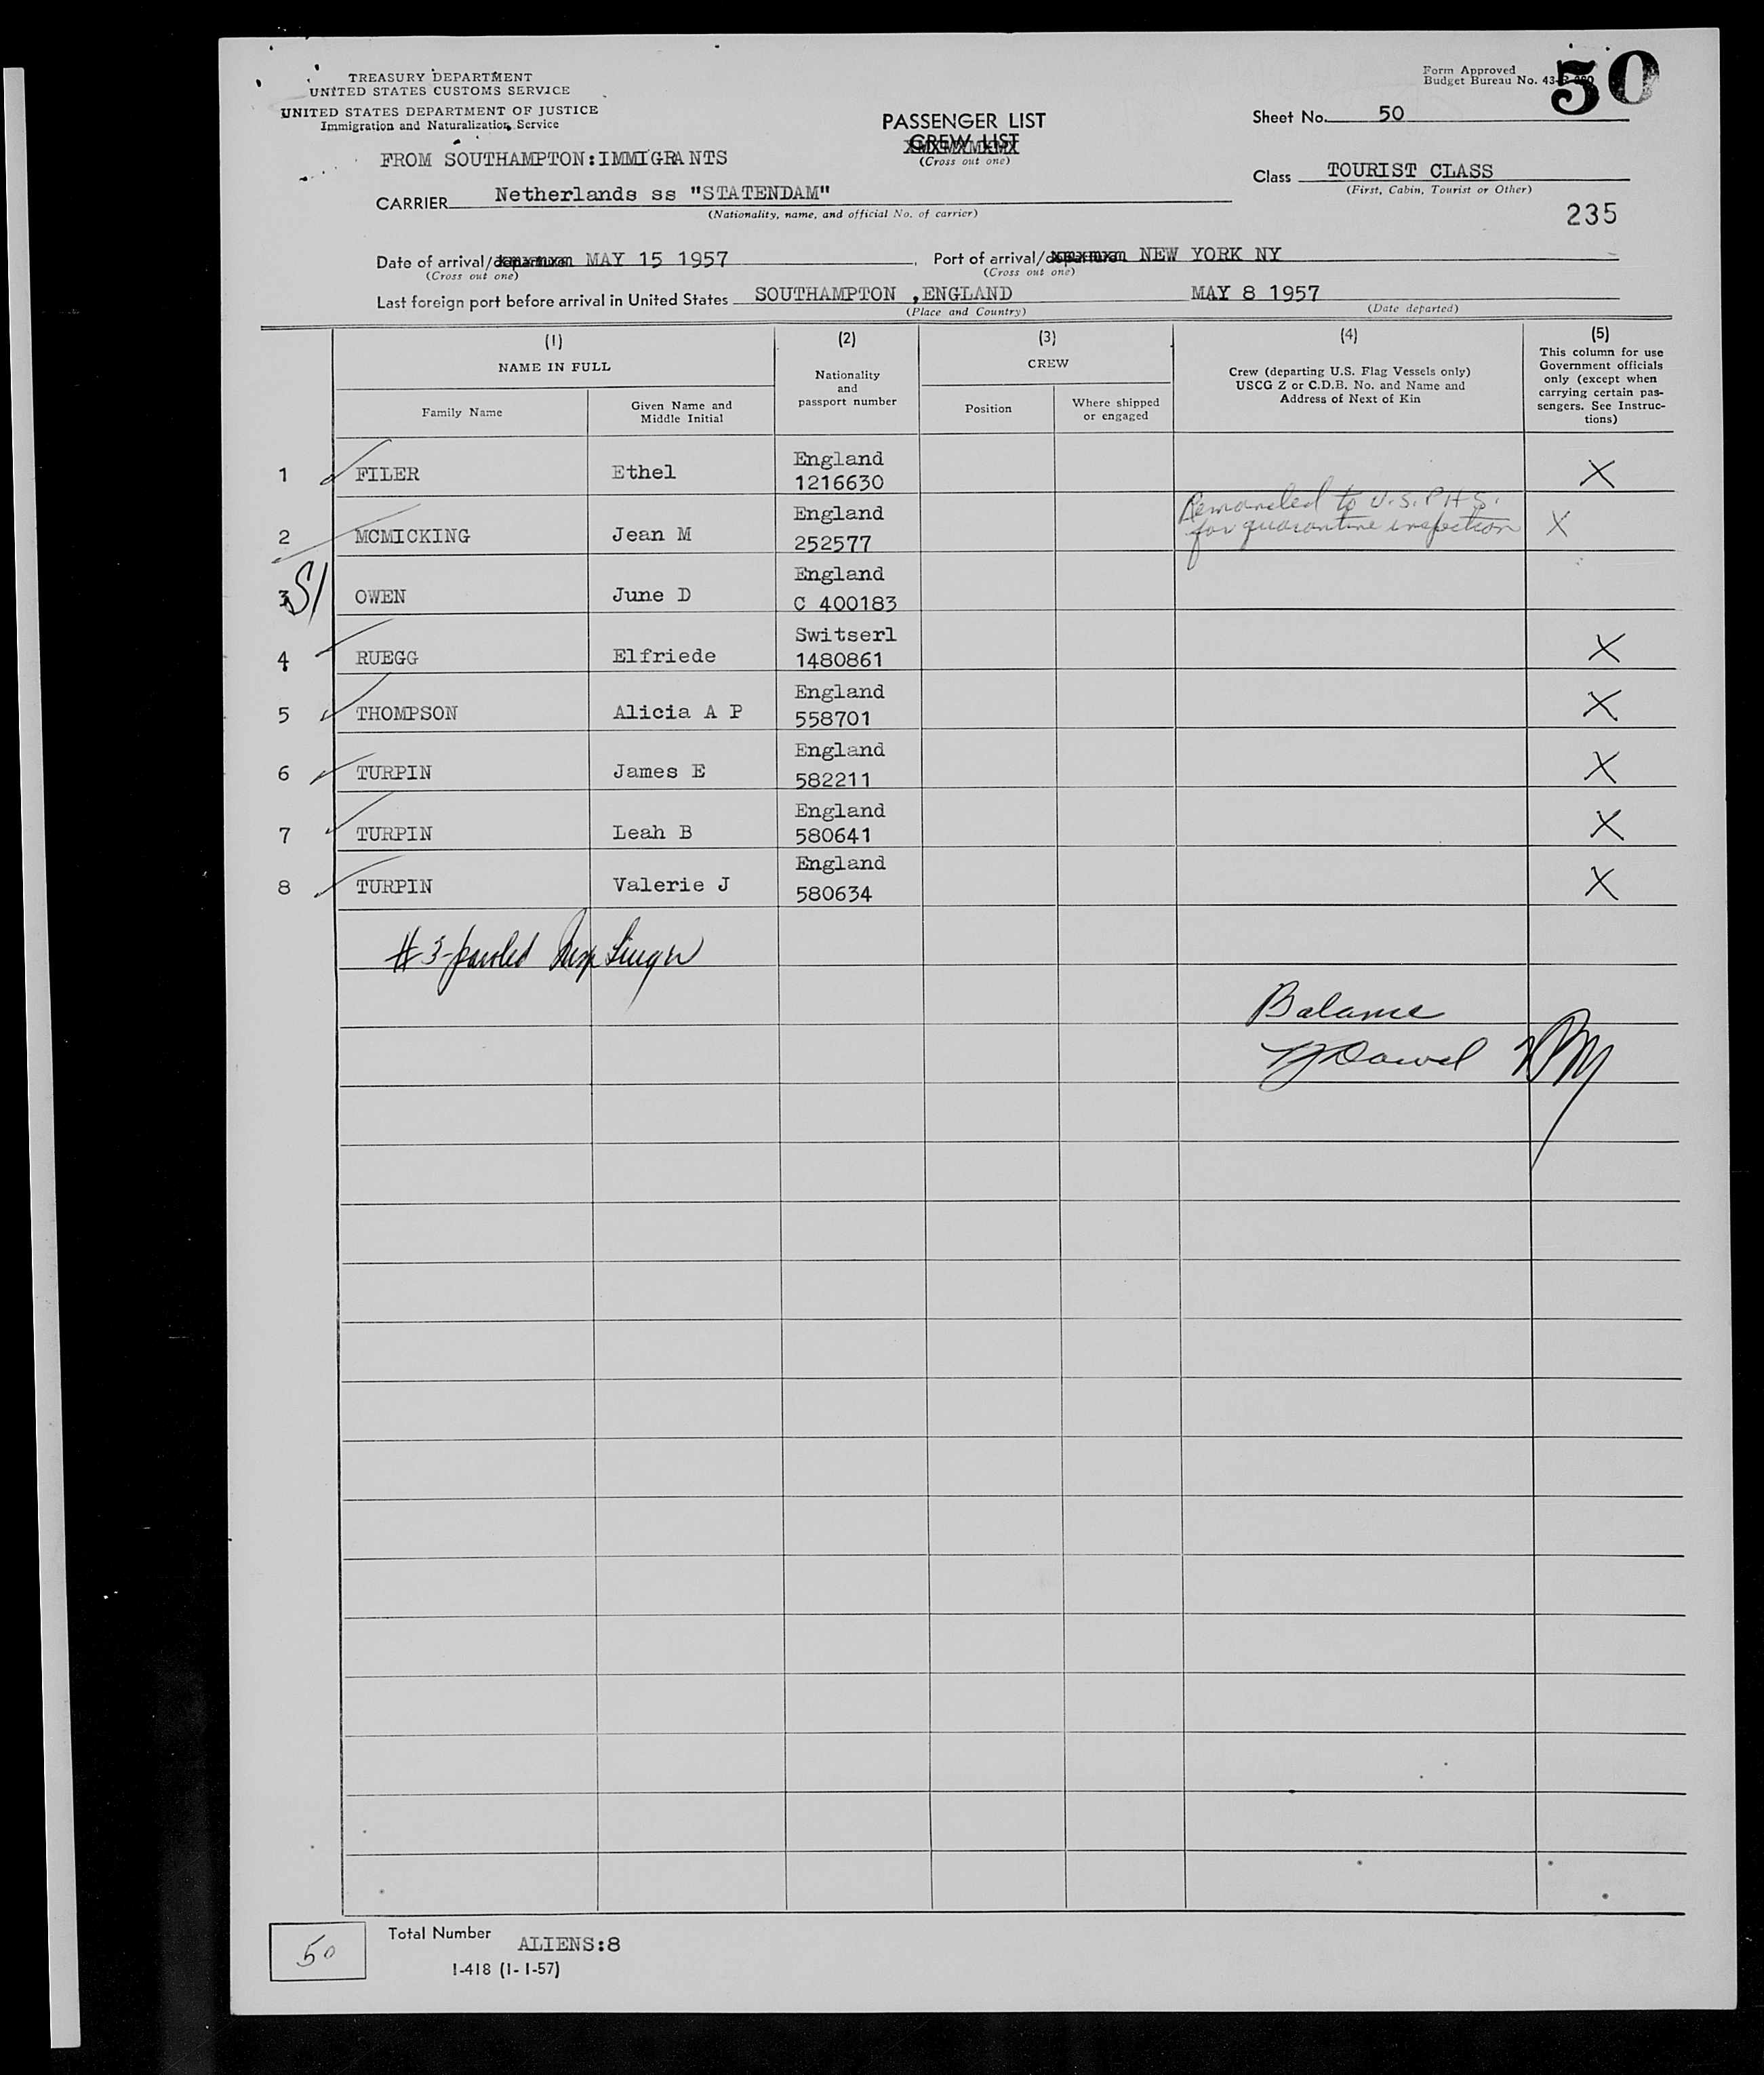 TREASURY DEPARTMENT
UNITED STATES CUSTOMS SERVICE
UNITED STATES DEPARTMENT OF JUSTICE
Immigration and Naturalization Service
Form Approved
Budget Bureau No. 43-
50
PASSENGER LIST
CREW LIST
(Cross out one)
Sheet No. 50
FROM SOUTHAMPTON:IMMIGRANTS
Class TOURIST CLASS
(First, Cabin, Tourist or Other)
CARRIER Netherlands ss "STATENDAM"
(Nationality, name, and official No. of carrier)
235
Date of arrival/departure MAY 15 1957 Port of arrival/departure NEW YORK NY
(Cross out one) (Cross out one)
Last foreign port before arrival in United States SOUTHAMPTON ,ENGLAND MAY 8 1957
(Place and Country) (Date departed)
(1) (2) (3) (4) (5)
NAME IN FULL
Family Name
Given Name and Middle Initial
Nationality and passport number
CREW
Position
Where shipped or engaged
Crew (departing U.S. Flag Vessels only)
USCG Z or C.D.B. No. and Name and
Address of Next of Kin
This column for use
Government officials
only (except when
carrying certain pas-
sengers. See Instruc-
tions)
1 FILER Ethel England 1216630 X
2 MCMICKING Jean M England 252577 Remanded to U.S.P.H.S. for quarantine inspection X
3 SI OWEN June D England C 400183
4 RUEGG Elfriede Switserl 1480861 X
5 THOMPSON Alicia A P England 558701 X
6 TURPIN James E England 582211 X
7 TURPIN Leah B England 580641 X
8 TURPIN Valerie J England 580634 X
#3-paroled
Balance
50
Total Number ALIENS:8
I-418 (1-1-57)